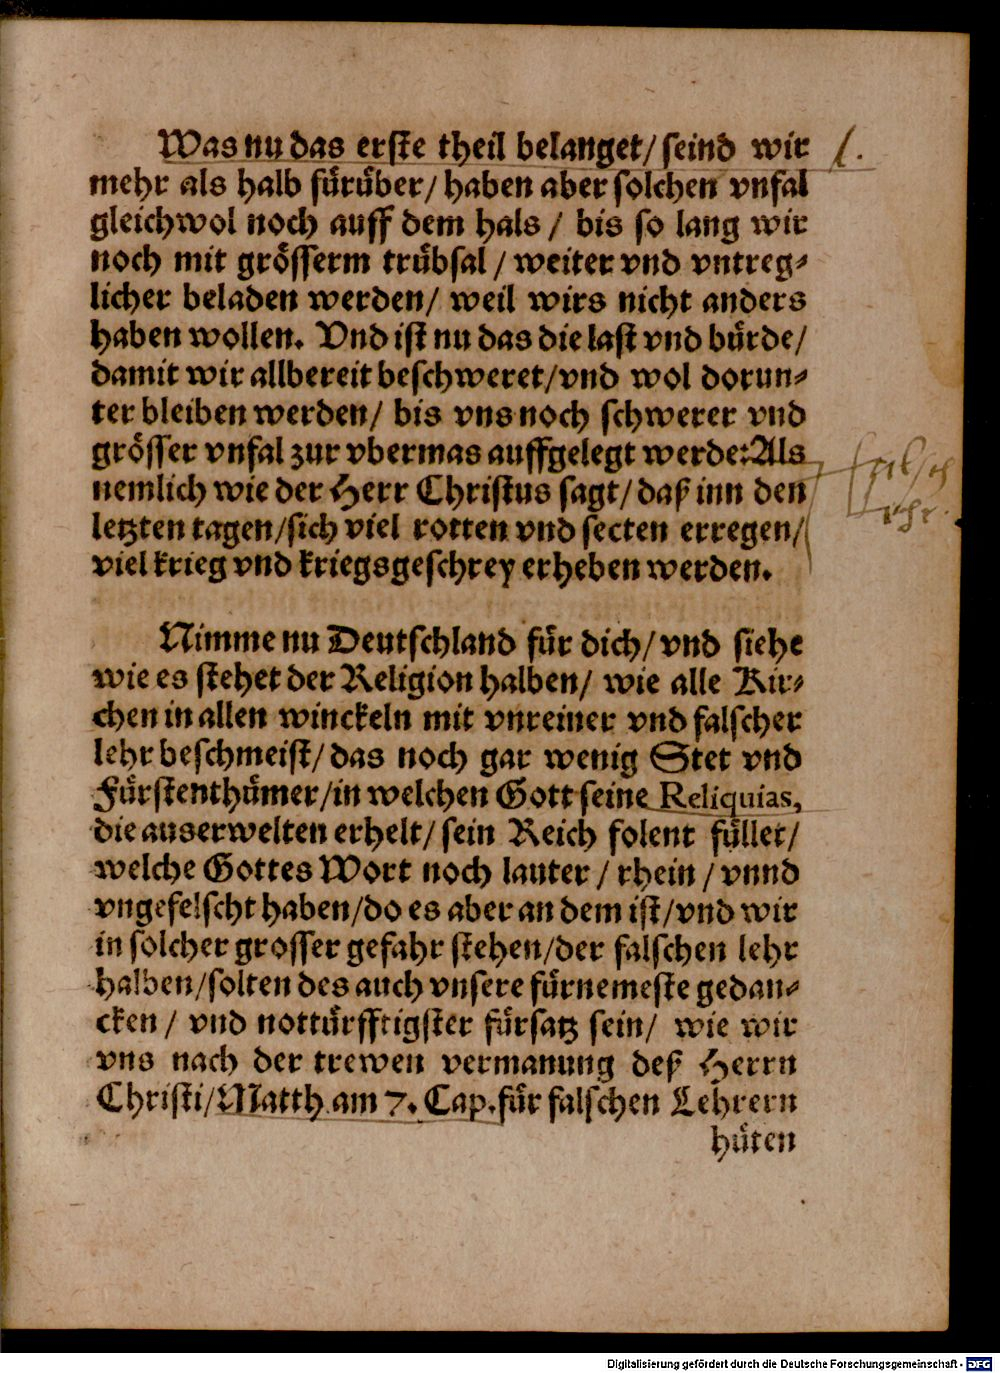 Was nu das erste theil belanget/ seind wir
1.
mehr als halb fürüber/ haben aber solchen vnfal
gleichwol noch auff dem hals / bis so lang wir
noch mit grösserm trübsal / weiter vnd vntreg⸗
licher beladen werden/ weil wirs nicht anders
haben wollen. Vnd ist nu das die last vnd bürde/
damit wir allbereit beschweret/vnd wol dorun⸗
ter bleiben werden/ bis vns noch schwerer vnd
grösser vnfal zur vbermas auffgelegt werde:Als
nemlich wie der Herr Christus sagt/ daß inn den
letzten tagen/sich viel rotten vnd secten erregen/
viel krieg vnd kriegsgeschrey erheben werden.
Nimme nu Deutschland für dich/ vnd siehe
wie es stehet der Religion halben/ wie alle Kir⸗
chen in allen winckeln mit vnreiner vnd falscher
lehr beschmeist/ das noch gar wenig Stet vnd
Fürstenthümer/in welchen Gott seine Reliquias,
die auserwelten erhelt/ sein Reich folent füllet/
welche Gottes Wort noch lauter / rhein / vnnd
vngefelscht haben/do es aber an dem ist/vnd wir
in solcher grosser gefahr stehen/der falschen lehr
halben/solten des auch vnsere fürnemeste gedan⸗
cken / vnd nottürfftigster fürsatz sein/ wie wir
vns nach der trewen vermanung deß Herrn
Christi/Matth am 7. Cap.für falschen Lehrern
hüten
Digitalisierung gefördert durch die Deutsche Forschungsgemeinschaft - DFG